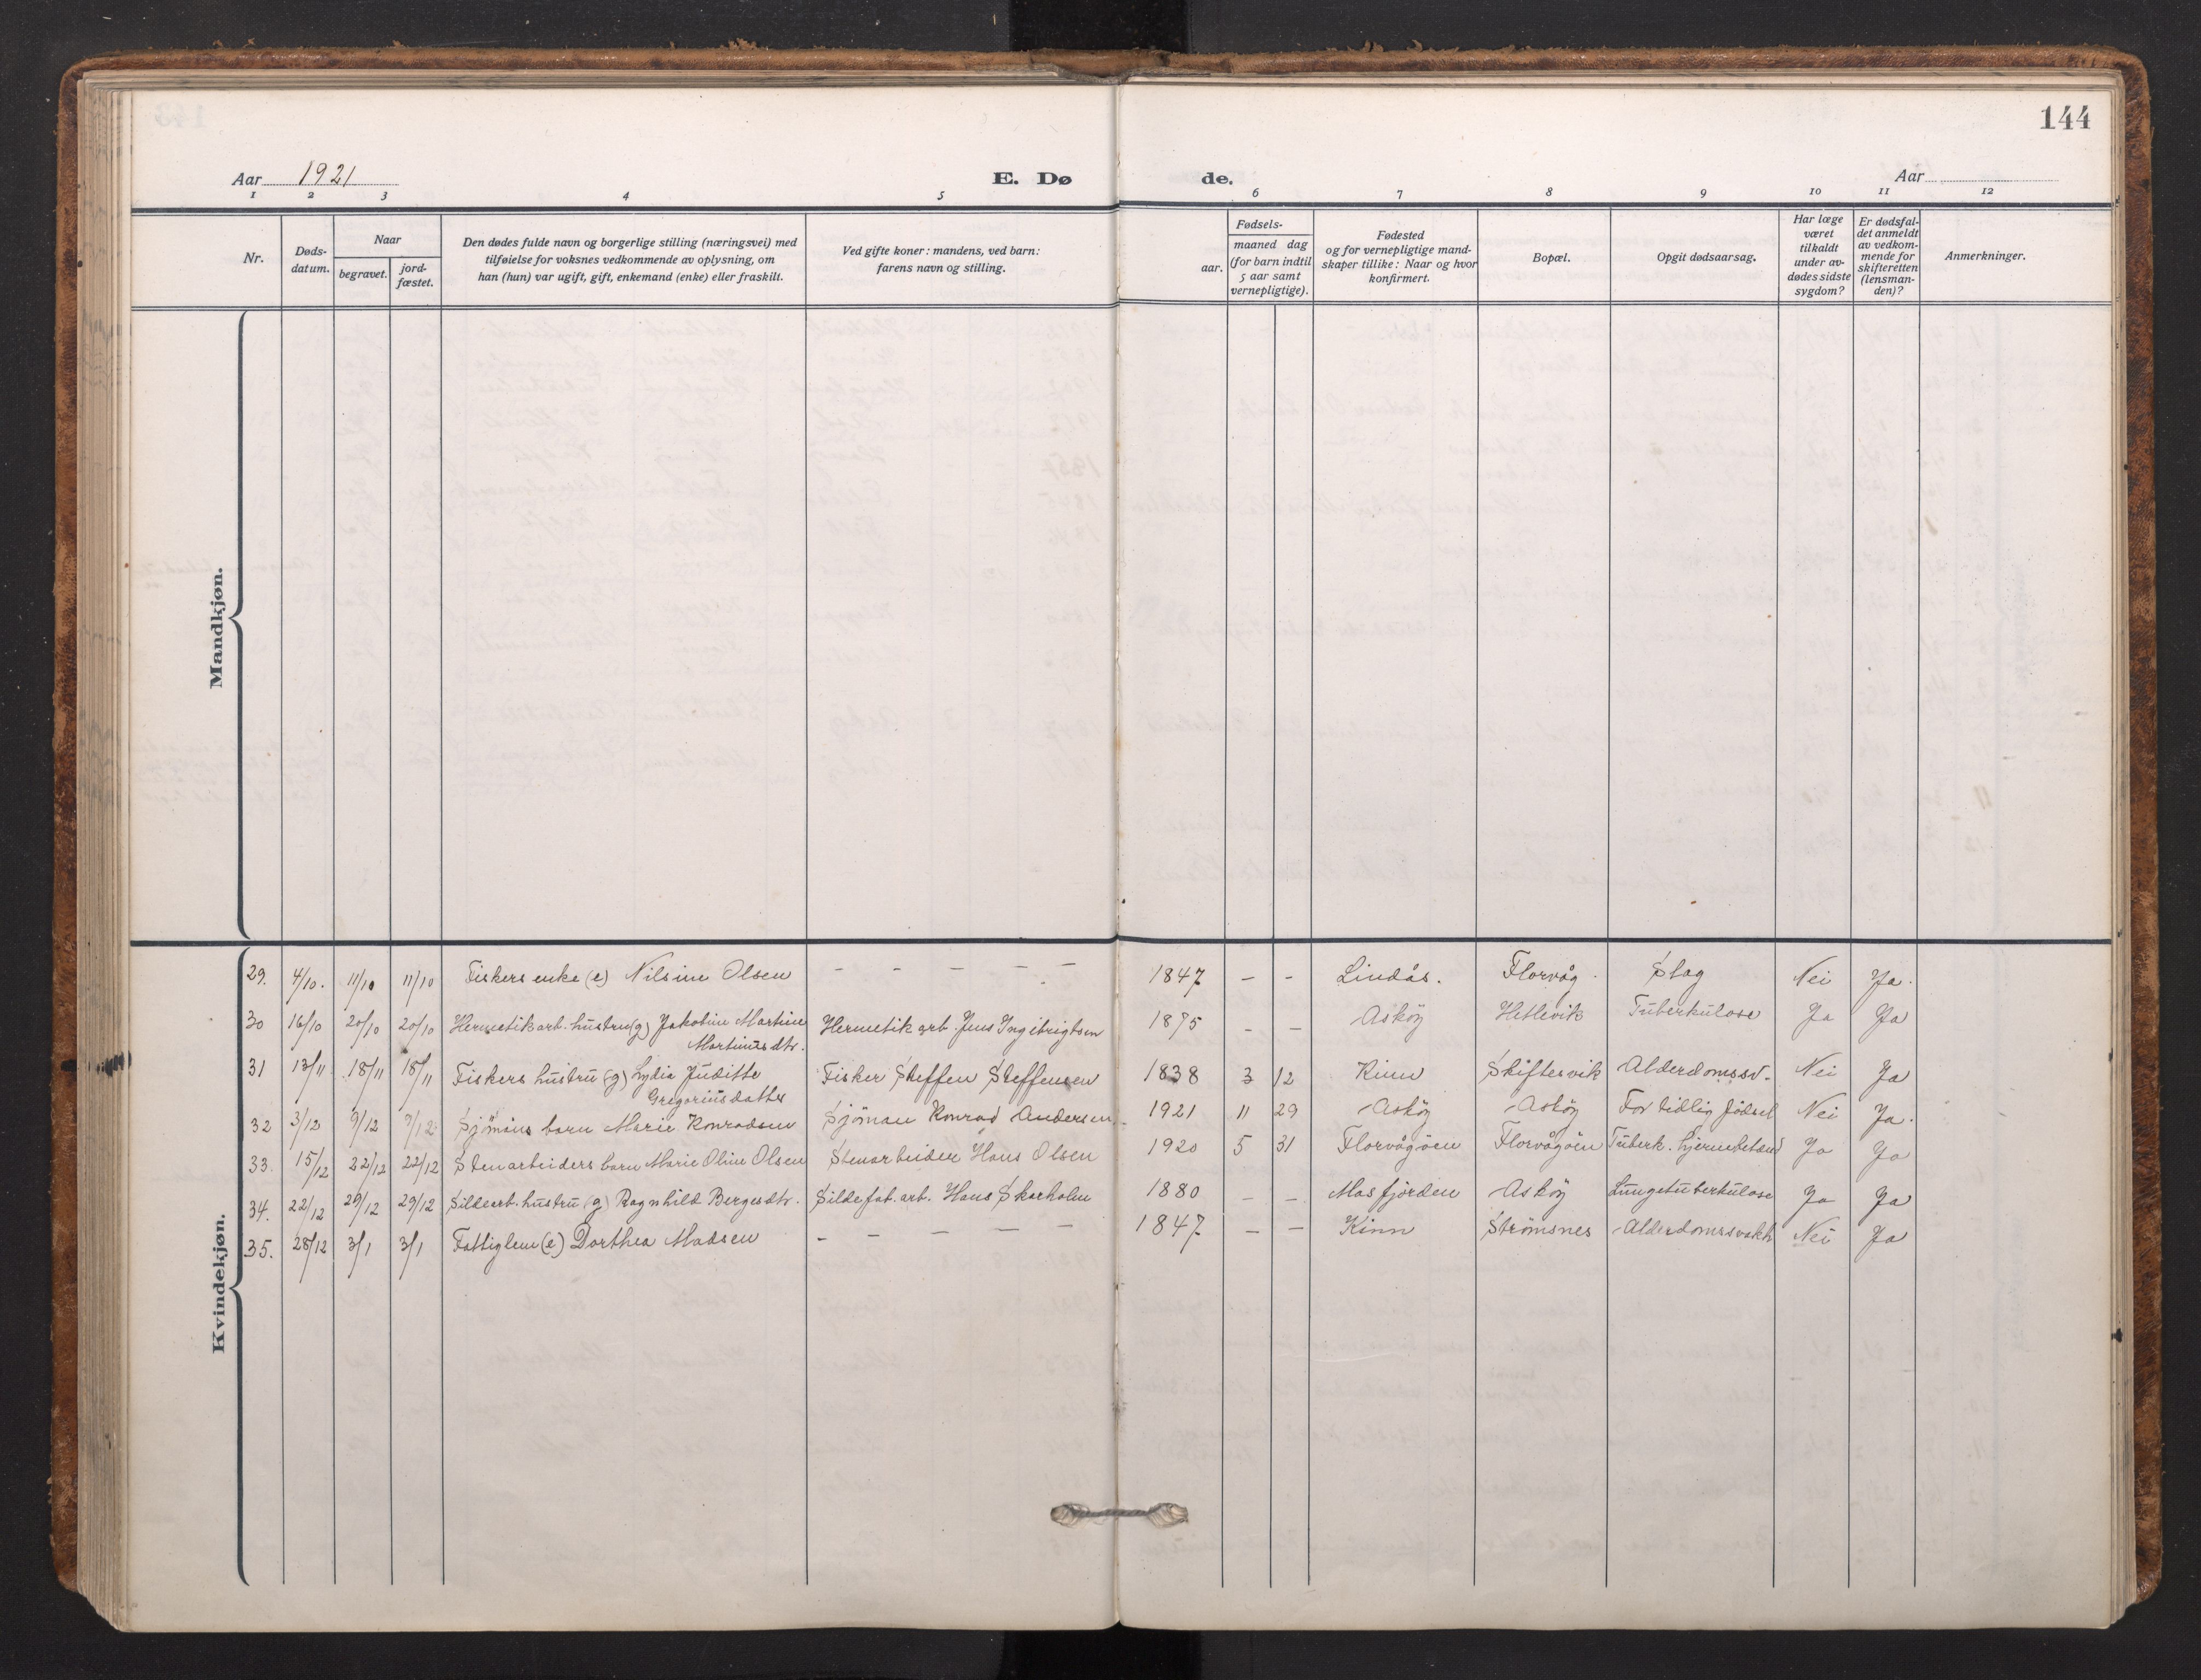 144
Aar 1921
E. Dø
de.
Aar
1 2 3 4 5 6 7 8 9 10 11 12
Nr.
Døds-
datum.
Naar
begravet.
jord-
fæstet.
Den dødes fulde navn og borgerlige stilling (næringsvei) med
tilføielse for voksnes vedkommende av oplysning, om
han (hun) var ugift, gift, enkemand (enke) eller fraskilt.
Ved gifte koner: mandens, ved barn:
farens navn og stilling.
Fødsels-
aar.
maaned dag
(for barn indtil
5 aar samt
vernepligtige).
Fødested
og for vernepligtige mand-
skaper tillike: Naar og hvor
konfirmert.
Bopæl.
Opgit dødsaarsag.
Har læge
været
tilkaldt
under av-
dødes sidste
sygdom?
Er dødsfal-
det anmeldt
av vedkom-
mende for
skifteretten
(lensman-
den)?
Anmerkninger.
Mandkjøn.
Kvindekjøn.
29. 4/10. 11/10 11/10 Fiskers enke (e) Nilsine Olsen - - - - - 1847 - - Lindås. Florvåg. Slag Nei Ja.
30 16/10 20/10 20/10 Hermetikarb. hustru (g) Jakobine Martine Hermetik arb. Jens Ingebrigtsen 1875 - - Asköy Hetlevik Tuberkulose Ja Ja
Martinusdtr.
31 13/11 18/11 18/11 Fiskers hustru (g) Lydia Juditte Fisker Steffen Steffensen 1838 3 12 Kinn Skiftesvik Alderdomssv. Nei Ja
Gregoriusdatter
32 3/12 9/12 9/12 Sjömans barn Marie Konradsen Sjöman Konrad Andersen 1921 11 29 Asköy Asköy For tidlig födsel Nei Ja.
33. 15/12 22/12 22/12 Stenarbeiders barn Marie Oline Olsen Stenarbeider Hans Olsen 1920 5 31 Florvågöen Florvågöen Tuberk. hjernebetænd Ja Ja
34. 22/12 29/12 29/12 Sildearb. hustru (g) Ragnhild Bergesdtr. Silde fab. arb. Hans Skarholm 1880 - - Masfjorden Asköy Lungetuberkulose Ja Ja
35. 28/12 3/1 3/1 Fattiglem (e) Dorthea Madsen - - - - - 1847 - - Kinn Strömsnes Alderdomssvakh Nei Ja